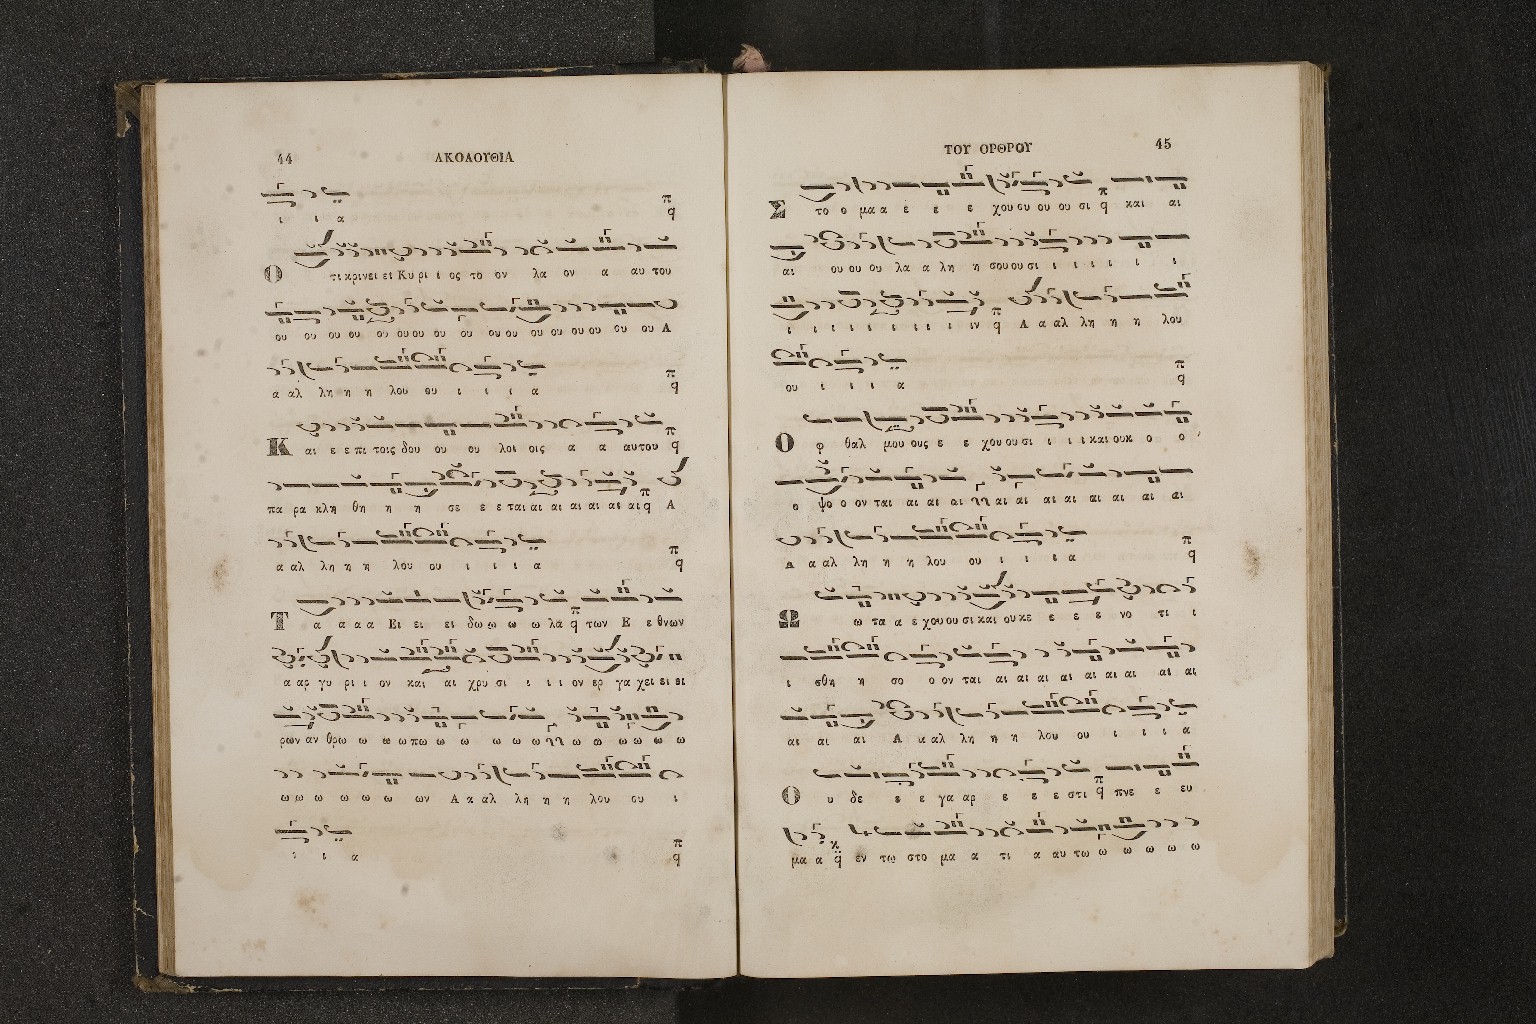 44 ΑΚΟΛΟΥΘΙΑ
ι ι α π
q
Ο τι κρινει ει Κυ ρι ι ος το ον λα ον α αυ του
ου ου ου ου ου ου ου ου ου ου ου ου ου ου ου ου ου Α
α αλ λη η η λου ου ι ι ι α π
q
Κ αι ε ε πι τοις δου ου ου λοι οις α α αυτου π
q
πα ρα κλη θη η η σε ε ε ται αι αι αι αι αι αι π
q Α
α αλ λη η η λου ου ι ι ι α π
q
Τ α α α α Ει ει ει δω ω ω ω λα π
q των Ε ε θνων
α αρ γυ ρι ι ον και αι χρυ σι ι ι ι ον ερ γα χει ει ει
ρων αν θρω ω ω ω πω ω ω ω ω ω ω ω ω ω ω ω
ω ω ω ω ω ω ων Α α αλ λη η η λου ου ι
ι ι α π
q
ΤΟΥ ΟΡΘΡΟΥ 45
Σ το ο μα α ε ε ε χου ου ου ου σι π
q και αι
αι ου ου ου λα α λη η σου ου σι ι ι ι ι ι ι
ι ι ι ι ι ι ι ι ι ιν π
q Α α αλ λη η η λου
ου ι ι ι α π
q
Ο φ θαλ μου ους ε ε χου ου σι ι ι ι και ουκ ο ο
ο ψο ο ον ται αι αι αι αι αι αι αι αι αι αι αι
Α α αλ λη η η λου ου ι ι ι α π
q
Ω ω τα α ε χου ου σι και ου κε ε ε ε νο τι ι
ι σθη η σο ο ον ται αι αι αι αι αι αι αι αι αι
αι αι αι Α α αλ λη η η λου ου ι ι ι α
Ο υ δε ε ε γα αρ ε ε ε στι π
q πνε ε ευ
μα α κ
q εν τω στο μα α τι α αυ τω ω ω ω ω ω